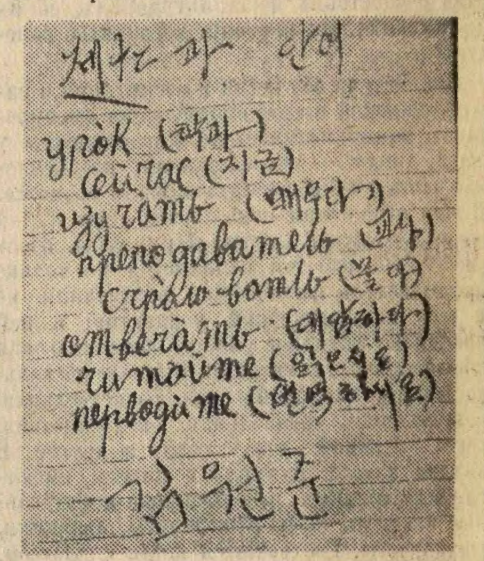 제 과 단어
уро̀к (학과)
сейчас (지금)
изучать (배우다)
преподаватель
(물어)
отвеча̀ть (대답하다)
читайте (읽으시오)
перводи̇те (번역하시오)
김원준